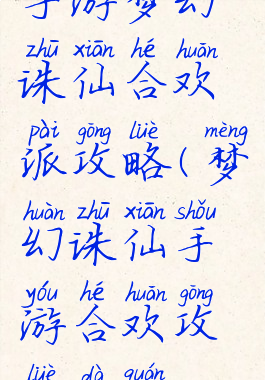 手游梦幻
zhū xiān hé huān
诛仙合欢
pài gōng lüè mèng
派攻略(梦
huàn zhū xiān shǒu
幻诛仙手
yóu hé huān gōng
游合欢攻
lüè dà quán